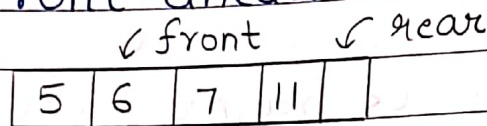 front rear
5 6 7 11